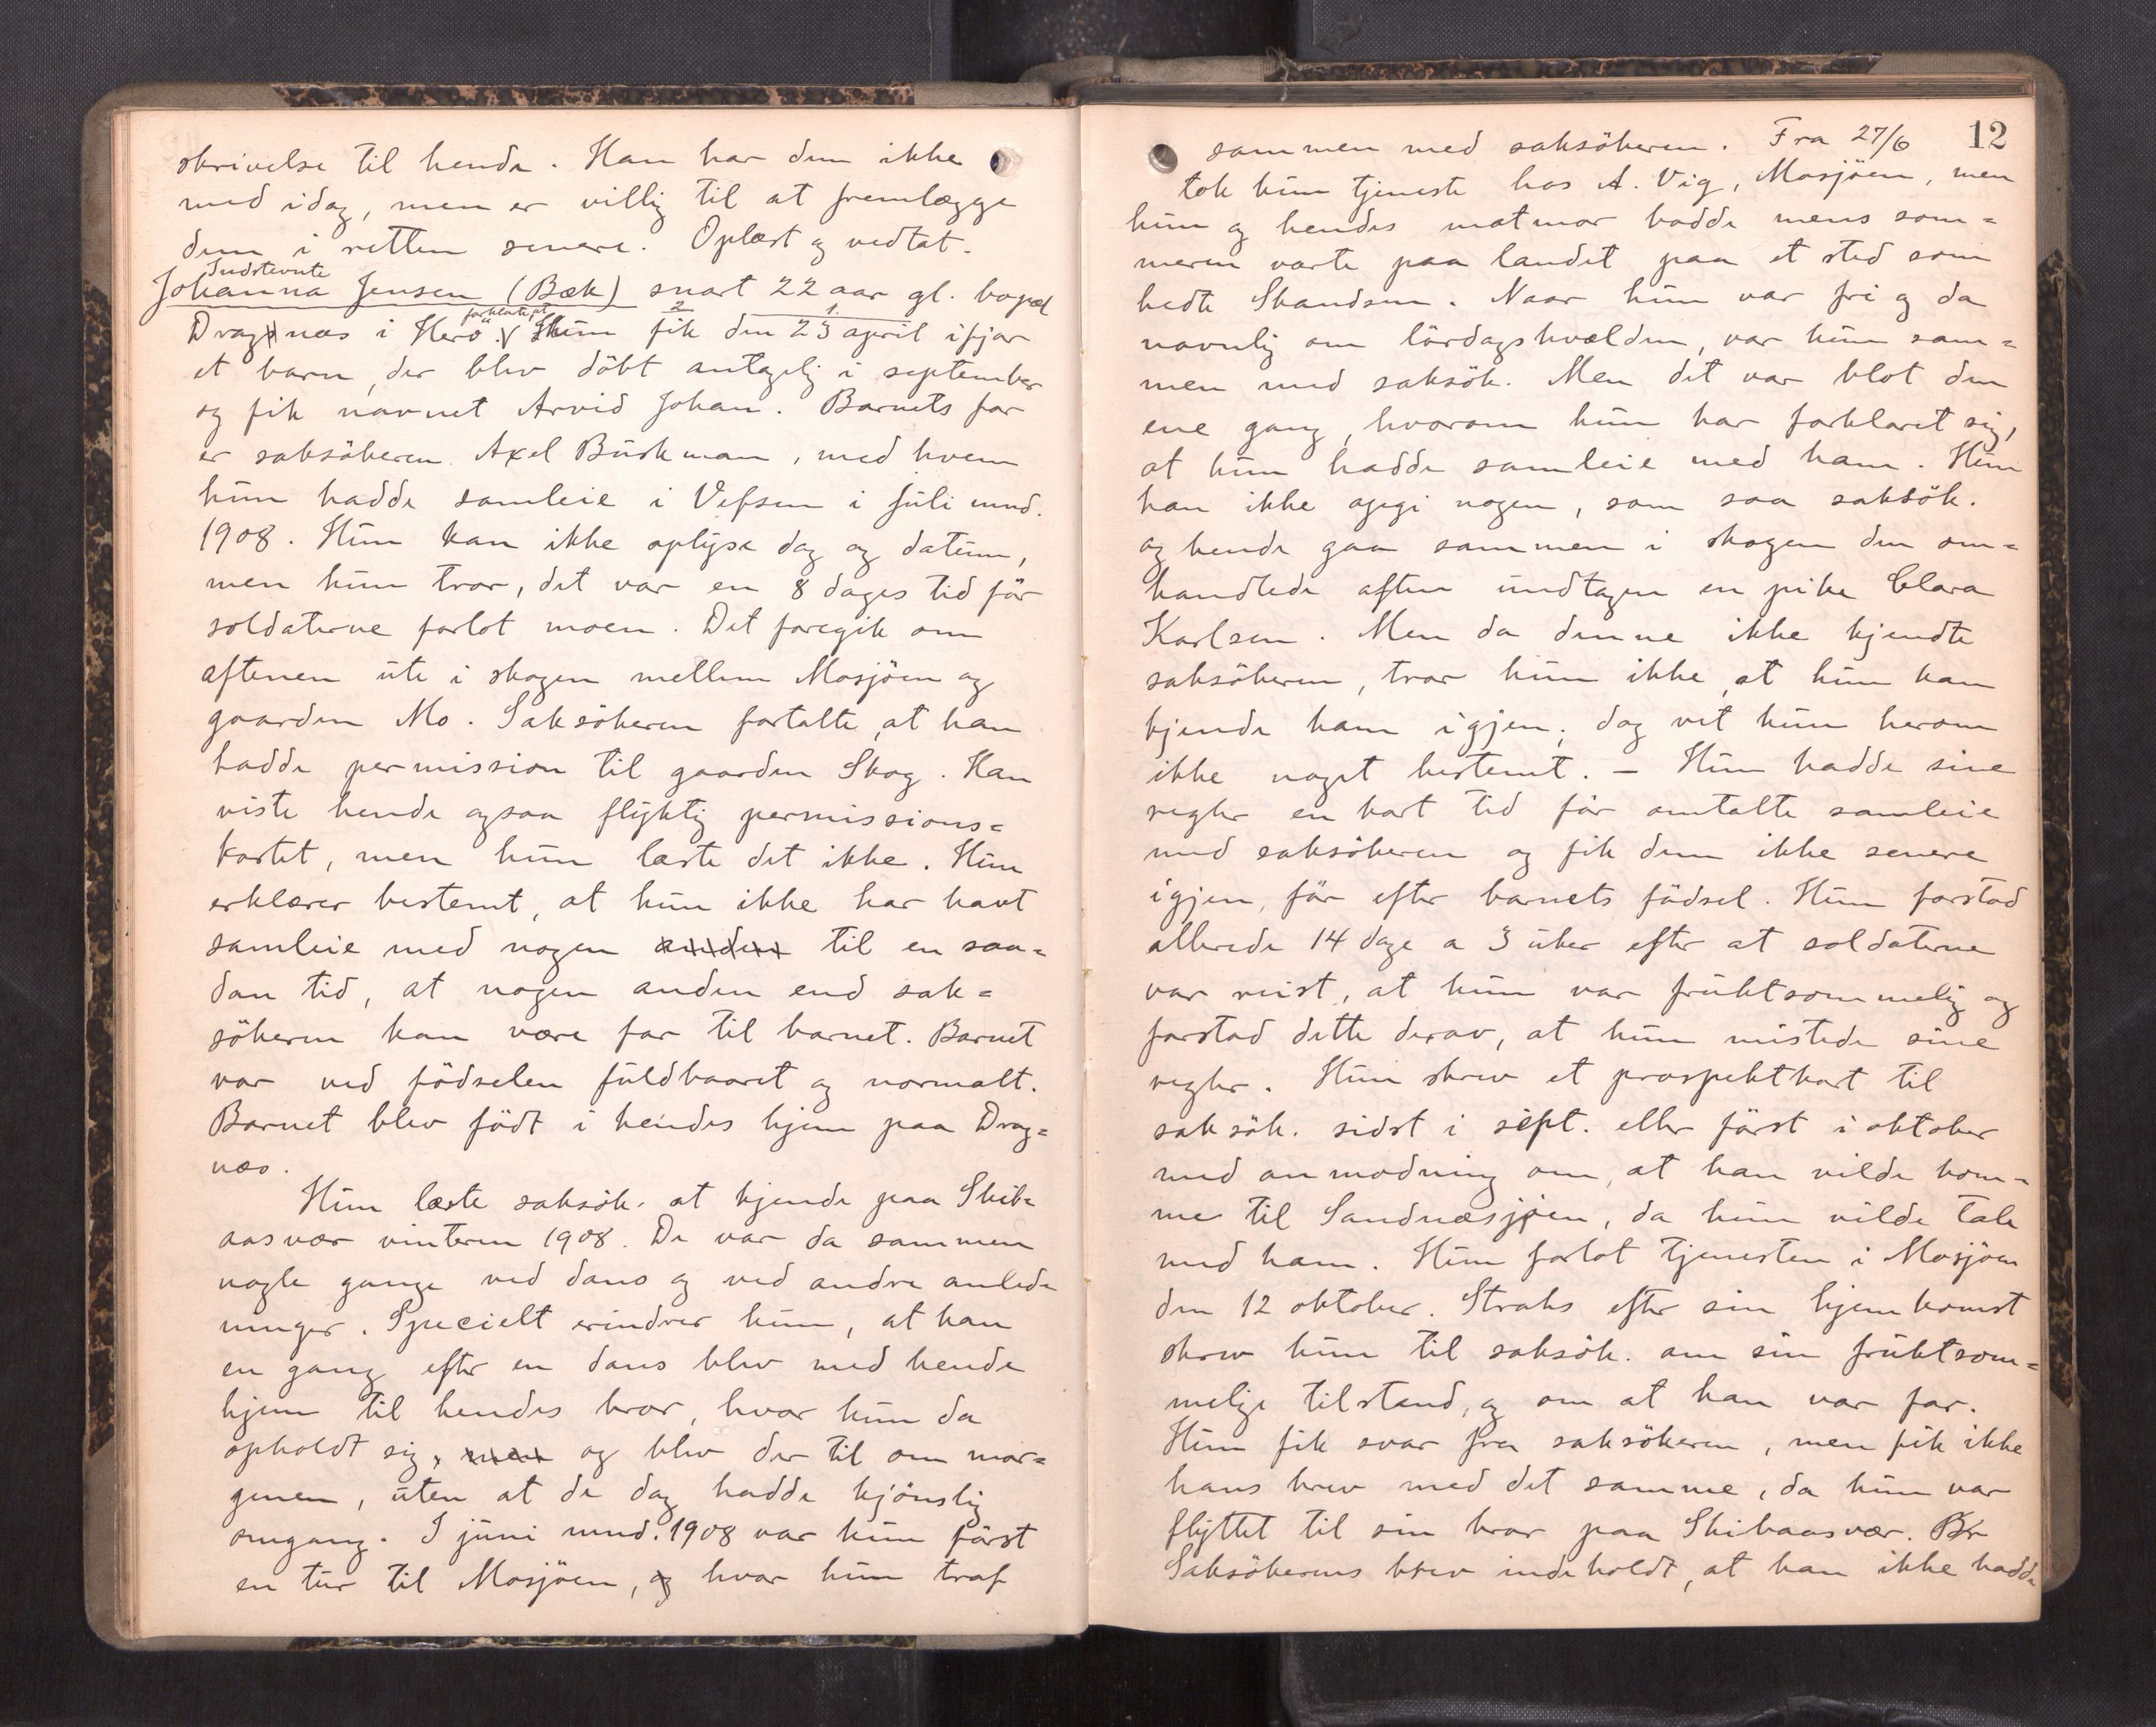 skrivelse til hende. Han har dem ikke
med idag, men er villig til at fremlægge
dem i retten senere. Oplæst og vedtat.
Indstevnte
Johanna Jensen (Bæk) snart 22 aar gl. bopæl
forklarte, at 2 1.
Dragsnæs i Herö. Hun fik den 23 april ifjor
et barn, der blev döbt antagelig i september
og fik navnet Arvid Johan. Barnets far
er saksökeren Axel Burkman, med hvem
hun hadde samleie i Vefsen i juli mnd.
1908. Hun kan ikke oplyse dag og datum,
men hun tror, det var en 8 dages tid för
soldaterne forlot moen. Det foregik om
aftenen ute i skogen mellem Mosjöen og
gaarden Mo. Saksökeren fortalte, at han
hadde permission til gaarden Skog. Han
viste hende ogsaa flyktig permissions=
kortet, men hun læste det ikke. Hun
erklærer bestemt, at hun ikke har havt
samleie med nogen anden til en saa=
dan tid, at nogen anden end sak=
sökeren kan være far til barnet. Barnet
var ved födselen fuldbaaret og normalt.
Barnet blev födt i hendes hjem paa Drag=
næs.
Hun lærte saksök. at kjende paa Skib=
aasvær vinteren 1908. De var da sammen
nogle gange ved dans og ved andre anled
ninger. Specielt erindrer hun, at han
en gang efter en dans blev med hende
hjem til hendes bror, hvor hun da
opholdt sig, men og blev der til om mor=
genen, uten at de dog hadde kjönslig
omgang. I juni mnd. 1908 var hun först
en tur til Mosjöen, og hvor hun traf
12
sammen med saksökeren. Fra 27/6
tok hun tjeneste hos A. Vig, Mosjöen, men
hun og hendes matmor bodde mens som=
meren varte paa landet paa et sted som
hedte Skandsen. Naar hun var fri og da
navnlig om lördagskvelden, var hun sam=
men med saksök. Men det var blot den
ene gang, hvorom hun har forklaret sig,
at hun hadde samleie med ham. Hun
kan ikke opgi nogen, som saa saksök.
og hende gaa sammen i skogen den om=
handlede aften undtagen en pike Clara
Karlsen. Men da denne ikke kjendte
saksökeren, tror hun ikke, at hun kan
kjende ham igjen; dog vet hun herom
ikke noget bestemt. — Hun hadde sine
regler en kort tid för omtalte samleie
med saksökeren og fik dem ikke senere
igjen, för efter barnets födsel. Hun forstod
allerede 14 dage a 3 uker efter at soldaterne
var reist, at hun var fruktsommelig og
forstod dette derav, at hun mistede sine
regler. Hun skrev et prospektkort til
saksök. sidst i sept. eller först i oktober
med anmodning om, at han vilde kom=
me til Sandnæsjöen, da hun vilde tale
med ham. Hun forlot tjenesten i Mosjöen
den 12 oktober. Straks efter sin hjemkomst
skrev hun til saksök. om sin fruktsom=
melige tilstand, og om at han var far.
Hun fik svar fra saksökeren, men fik ikke
hans brev med det samme, da hun var
flyttet til sin bror paa Skibaasvær. Br
Saksökerens brev indeholdt, at han ikke hadde